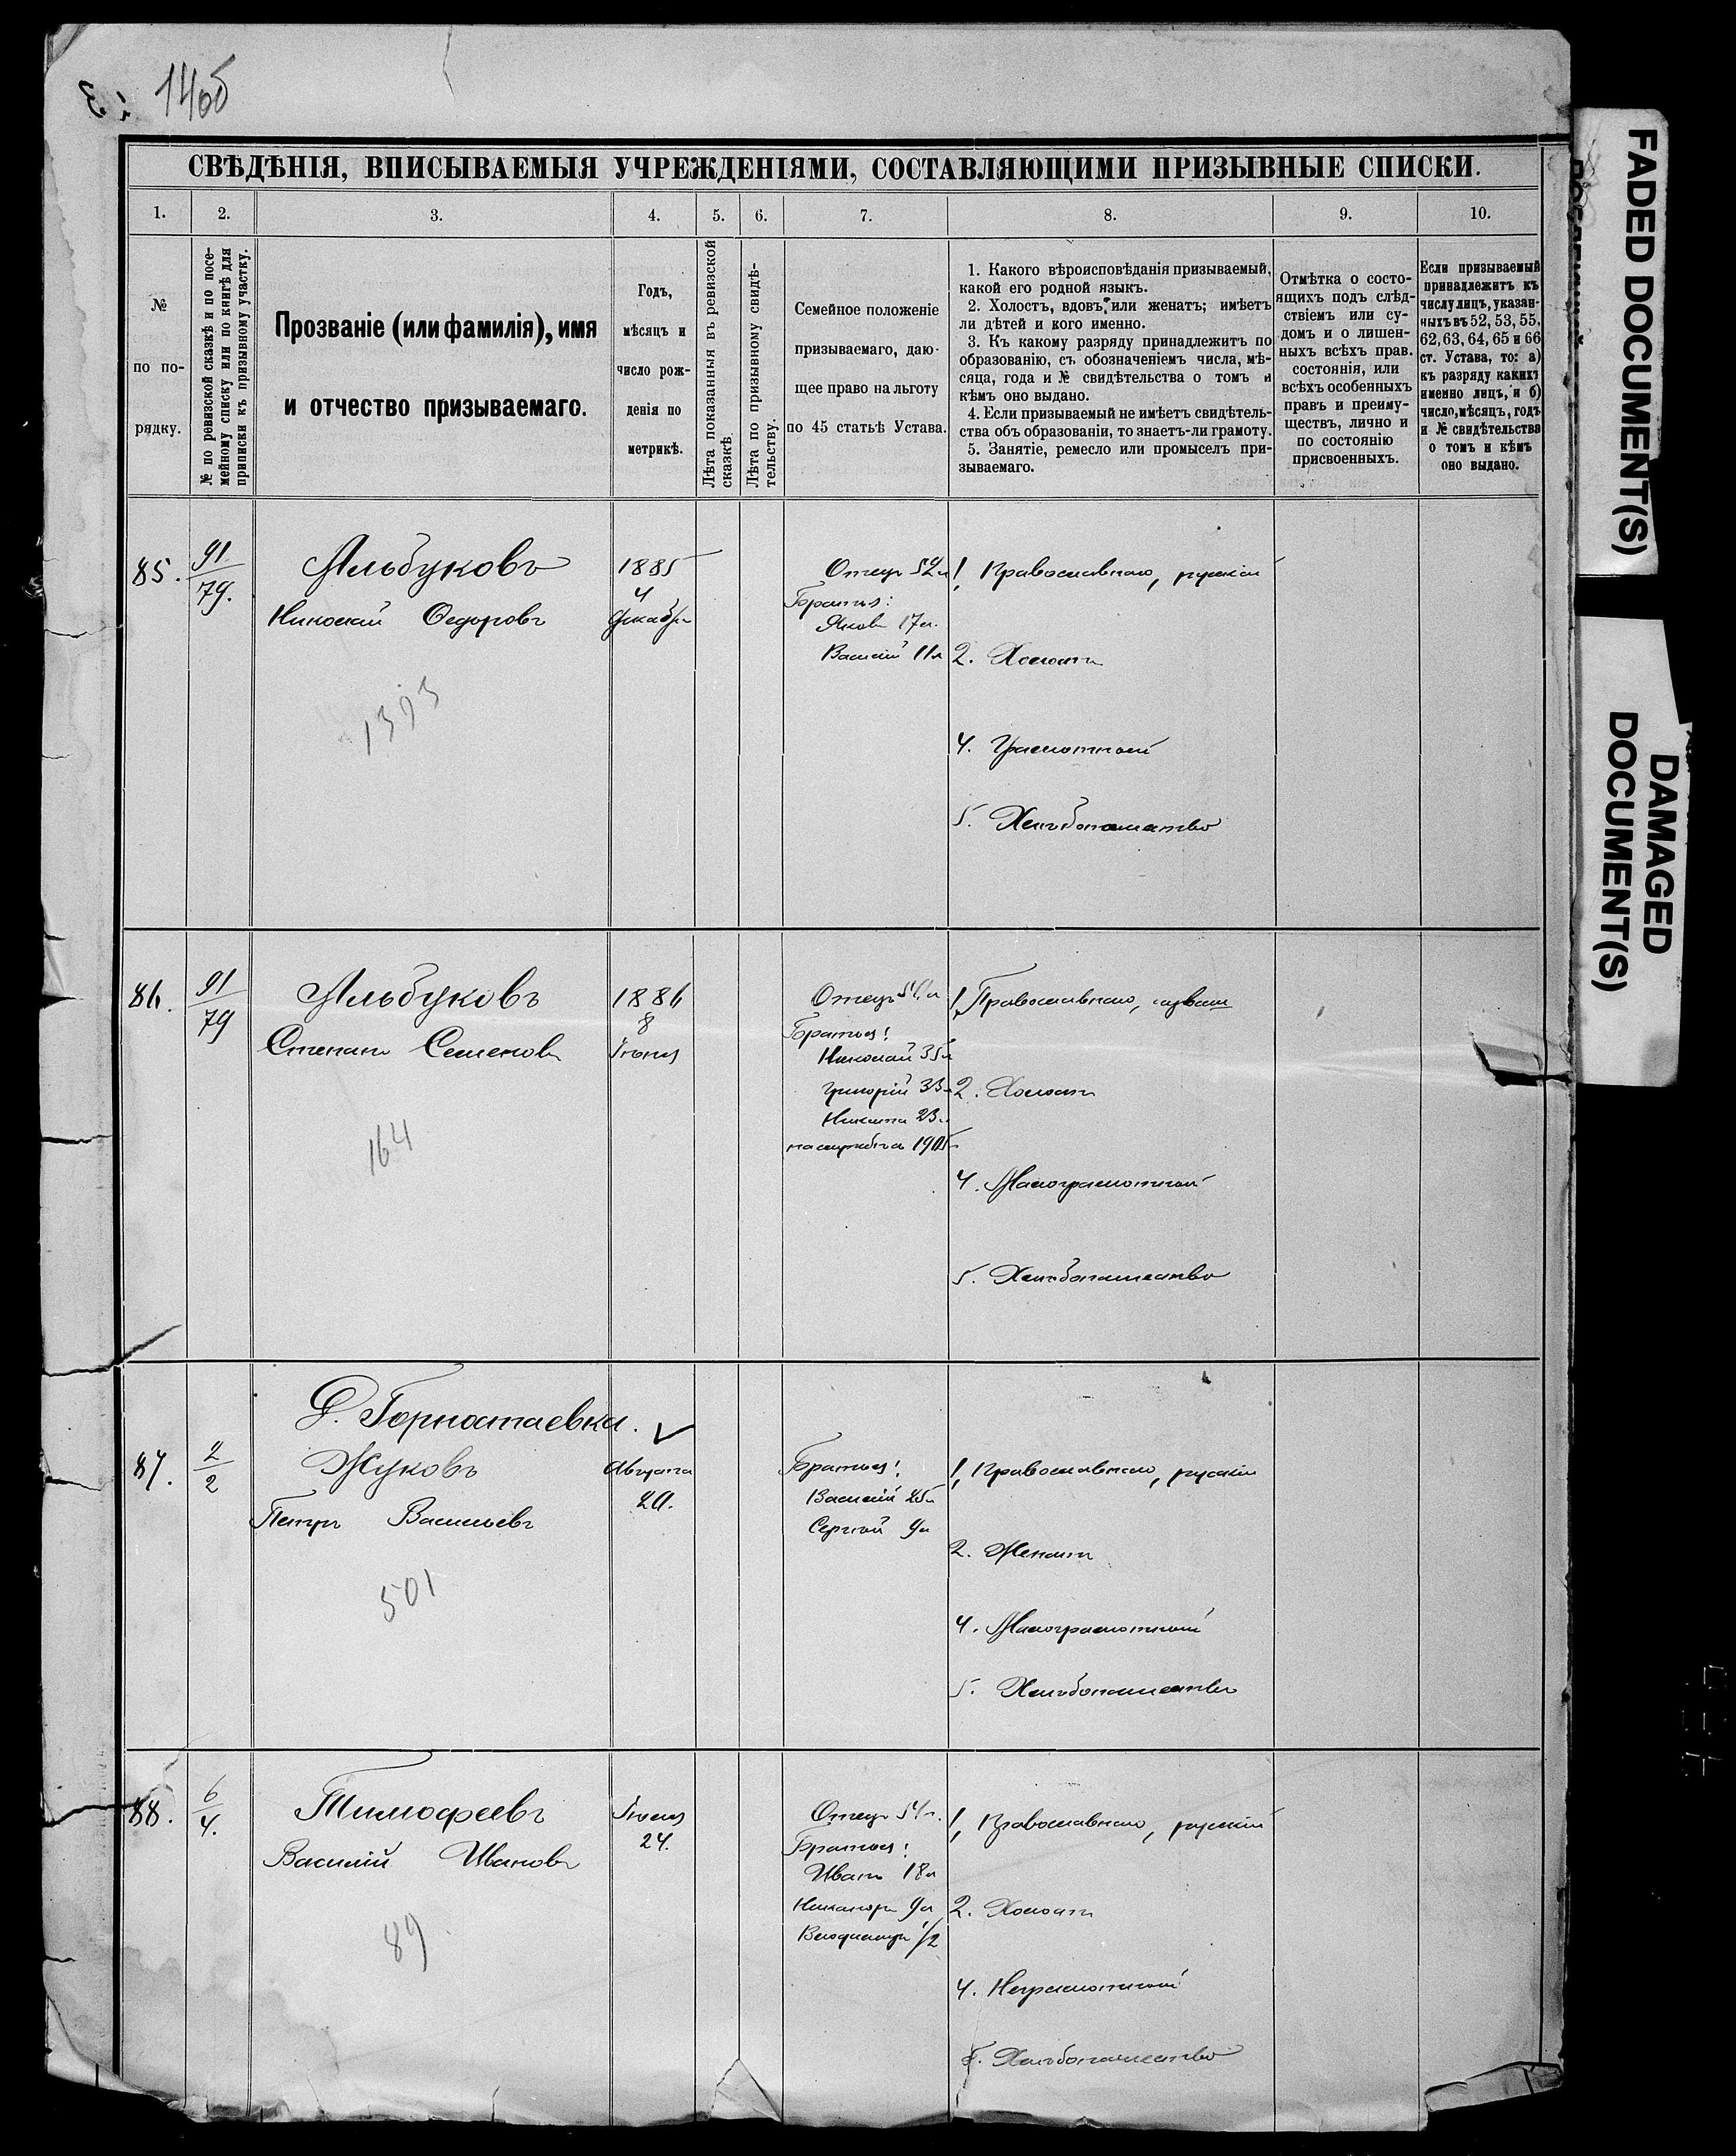 1406
СВѢДѢНІЯ, ВПИСЫВАЕМЫЯ УЧРЕЖДЕНІЯМИ, СОСТАВЛЯЮЩИМИ ПРИЗЫВНЫЕ СПИСКИ.
1. 2. 3. 4. 5. 6. 7. 8. 9. 10.
№
по по-
рядку.
№ по ревизской сказкѣ и по посе-
мейному списку или по книгѣ для
приписки къ призывному участку.
Прозваніе (или фамилія), имя
и отчество призываемаго.
Годъ,
мѣсяцъ и
число рож-
денія по
метрикѣ.
Лѣта показанныя въ ревизской
сказкѣ.
Лѣта по призывному свидѣ-
тельству.
Семейное положеніе
призываемаго, даю-
щее право на льготу
по 45 статьѣ Устава.
1. Какого вѣроисповѣданія призываемый,
какой его родной языкъ.
2. Холостъ, вдовъ, или женатъ; имѣетъ
ли дѣтей и кого именно.
3. Къ какому разряду принадлежитъ по
образованію, съ обозначеніемъ числа, мѣ-
сяца, года и № свидѣтельства о томъ и
кѣмъ оно выдано.
4. Если призываемый не имѣетъ свидѣтель-
ства объ образованіи, то знаетъ-ли грамоту.
5. Занятіе, ремесло или промыселъ при-
зываемаго.
Отмѣтка о состо-
ящихъ подъ слѣд-
ствіемъ или су-
домъ и о лишен-
ныхъ всѣхъ прав.
состоянія, или
всѣхъ особенныхъ
правъ и преиму-
ществъ, лично и
по состоянію
присвоенныхъ.
Если призываемый
принадлежитъ къ
числу лицъ, указан-
ныхъ въ 52, 53, 55,
62, 63, 64, 65 и 66
ст. Устава, то: а)
къ разряду какихъ
именно лицъ, и б)
число, мѣсяцъ, годъ
и № свидѣтельства
о томъ и кѣмъ
оно выдано.
85.
91
79.
Альбуковъ
Николай Федоровъ
1393
1885
4
Декабря
Отецъ 52 л
Братья:
Яковъ 17 л.
Василій 11 л
1, Православнаго, русскій
2. Холостъ
4. Грамотный
5. Хлѣбопашество
86.
91
79
Альбуковъ
Степанъ Семеновъ
164
1886
8
Іюня
Отецъ
Братья:
Николай 35 л
Григорій 33 л
Никита 23 л
на службѣ съ 1905 г
1, Православнаго, чуваш
2. Холостъ
4. Малограмотный
5. Хлѣбопашество
Д. Горностаевка.
87.
2
2
Жуковъ
Петръ Васильевъ
501
Августа
20.
Братья:
Василій 25 л
Сергѣй 9 л
1, Православнаго, русскій
2. Женатъ
4. Малограмотный
5. Хлѣбопашество
88.
6
4.
Тимофеевъ
Василій Ивановъ
89
24.
Отецъ 54 л.
Братья:
Иванъ 18 л
Никаноръ 9 л
Владиміръ 1/2
1, Православнаго, русскій
2. Холостъ
4. Неграмотный
5. Хлѣбопашество
FADED DOCUMENT(S)
DAMAGED
DOCUMENT(S)